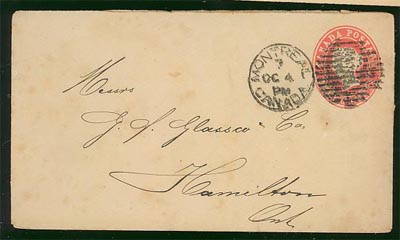 CANADA POST
MONTREAL
7
OC 4
PM
CANADA
Messrs
G. S. Glassco & Co.
Hamilton
Ont